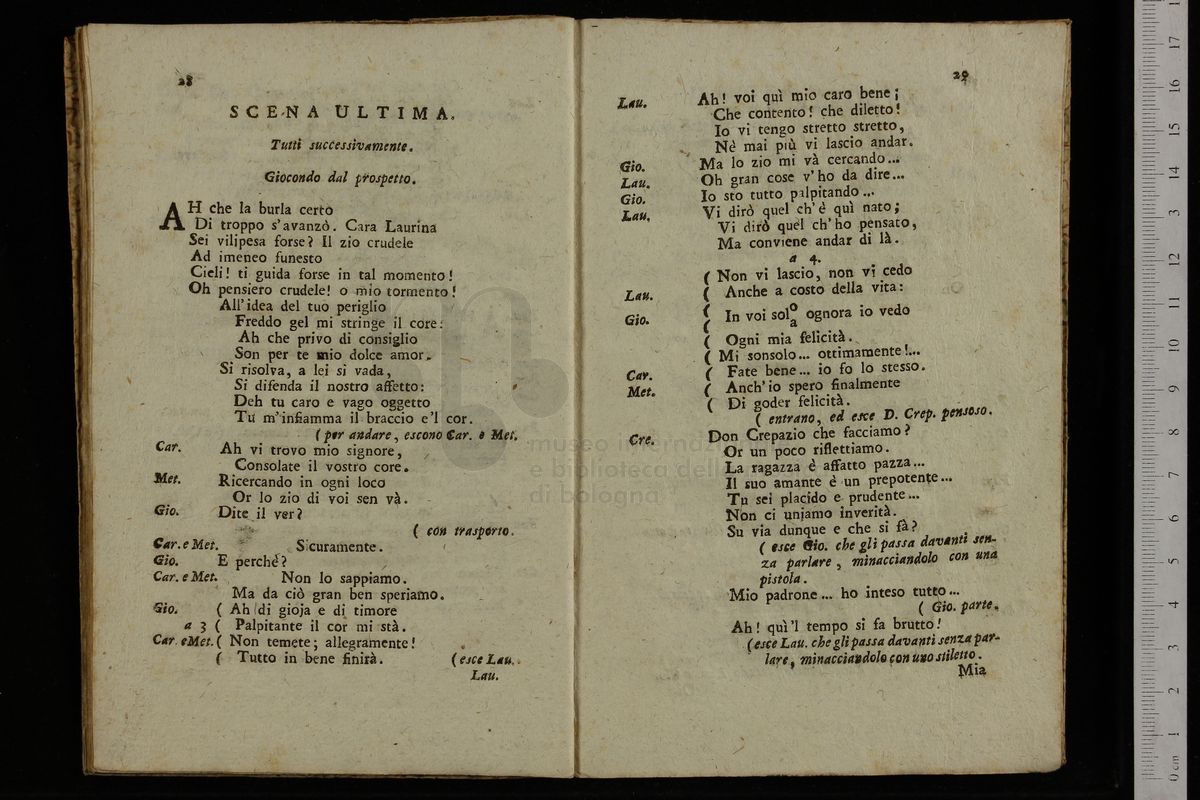 28
SCENA ULTIMA.
Tutti successivamente.
Giocondo dal prospetto.
AH che la burla certo
Di troppo s'avanzò. Cara Laurina
Sei vilipesa forse? Il zio crudele
Ad imeneo funesto
Cieli! ti guida forse in tal momento!
Oh pensiero crudele! o mio tormento!
All'idea del tuo periglio
Freddo gel mi stringe il core:
Ah che privo di consiglio
Son per te mio dolce amor.
Si risolva, a lei si vada,
Si difenda il nostro affetto:
Deh tu caro e vago oggetto
Tu m'infiamma il braccio e'l cor.
( per andare, escono Car. e Met.
Car. Ah vi trovo mio signore,
Consolate il vostro core.
Met. Ricercando in ogni loco
Or lo zio di voi sen và.
Gio. Dite il ver?
( con trasporto.
Car. e Met. Sicuramente.
Gio. E perchè?
Car. e Met. Non lo sappiamo.
Ma da ciò gran ben speriamo.
Gio. ( Ah di gioja e di timore
a 3 ( Palpitante il cor mi stà.
Car. e Met. ( Non temete; allegramente!
( Tutto in bene finirà. ( esce Lau.
Lau.
29
Lau. Ah! voi quì mio caro bene;
Che contento! che diletto!
Io vi tengo stretto stretto,
Nè mai più vi lascio andar.
Gio. Ma lo zio mi và cercando...
Lau. Oh gran cose v'ho da dire...
Gio. Io sto tutto palpitando...
Lau. Vi dirò quel ch'è quì nato;
Vi dirò quel ch'ho pensato,
Ma conviene andar di là.
a 4.
( Non vi lascio, non vi cedo
Lau. ( Anche a costo della vita:
Gio. ( In voi sol o/a ognora io vedo
( Ogni mia felicità.
( Mi sonsolo... ottimamente!...
Car. ( Fate bene... io fo lo stesso.
Met. ( Anch'io spero finalmente
( Di goder felicità.
( entrano, ed esce D. Crep. pensoso.
Cre. Don Crepazio che facciamo?
Or un poco riflettiamo.
La ragazza è affatto pazza...
Il suo amante è un prepotente...
Tu sei placido e prudente...
Non ci uniamo inverità.
Su via dunque e che si fà?
( esce Gio. che gli passa davanti sen-
za parlare, minacciandolo con una
pistola.
Mio padrone... ho inteso tutto...
( Gio. parte.
Ah! quì'l tempo si fa brutto!
( esce Lau. che gli passa davanti senza par-
lare, minacciandolo con uno stiletto.
Mia
museo internaz
e biblioteca della
di bologna
0 cm 1 2 3 4 5 6 7 8 9 10 11 12 13 14 15 16 17